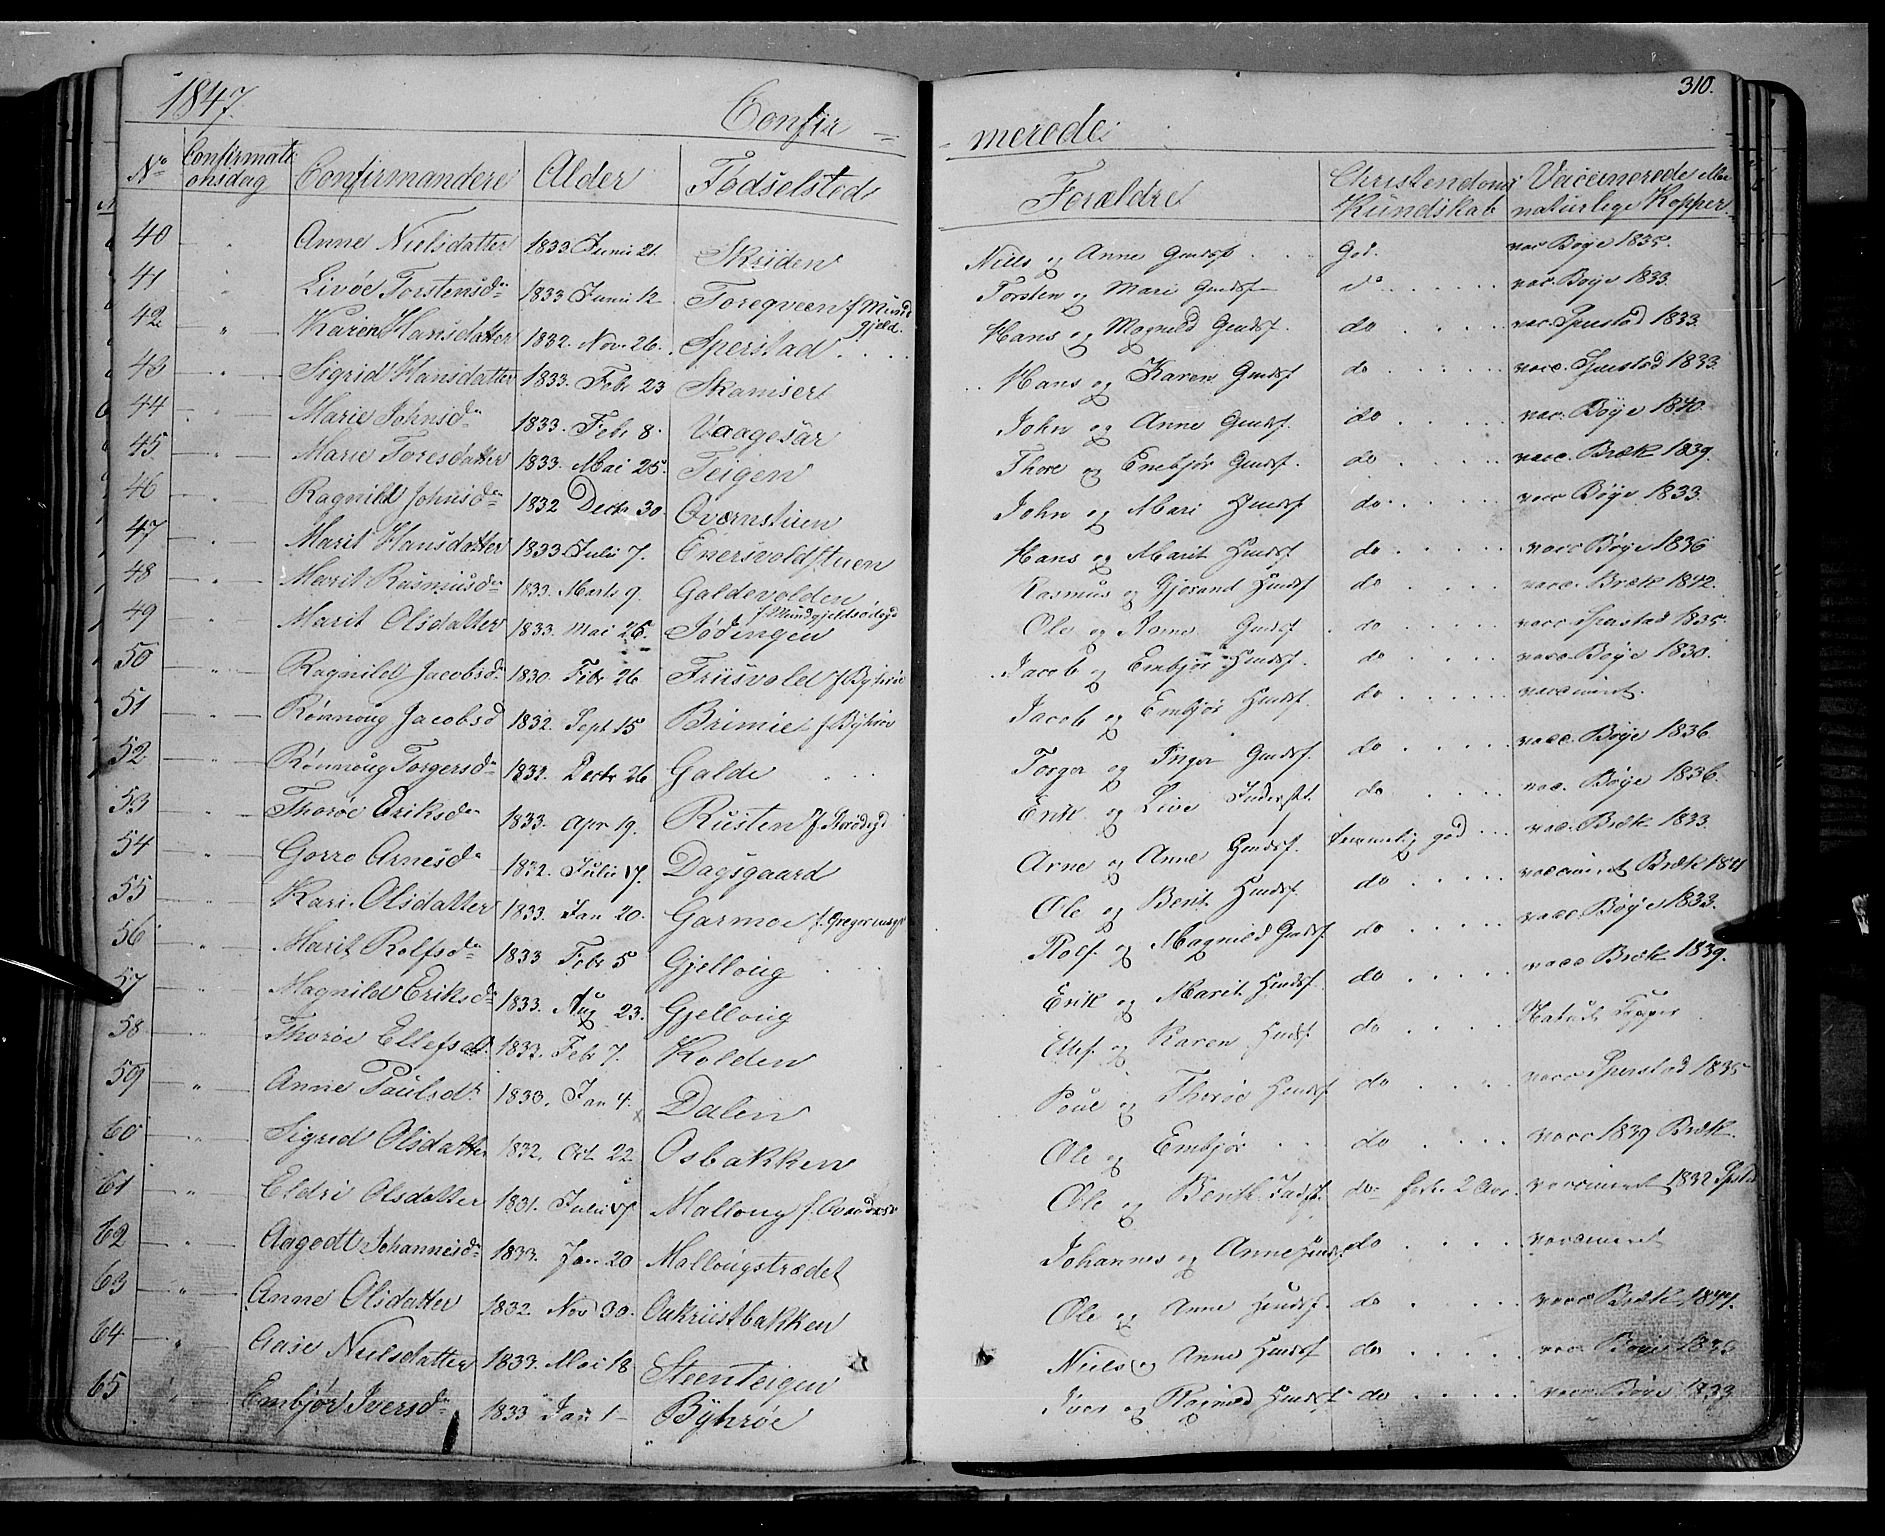 1847. Confir-
-merede. 310.
No Confirmationsdag Confirmandere Alder Fødselsted Forældre Christendoms Kundskab Vaccinerede eller naturlige Kopper
40 " Anne Nielsdatter 1833 Junii 21. Skriden Niels og Anne Gmdsf. God. vac Bøye 1835.
41 " Livøe Torstensdr 1833 Junii 12 Toregveen f Mundgjeld. Torsten og Mari Gmdsf do vac. Bøye 1833.
42 " Karen Hansdatter 1832. Nov. 26. Sperstad Hans og Magnild Gmdsf. do vac. Sperstad 1833.
43 " Sigrid Hansdatter 1833. Febr 23 Skamser Hans og Karen Gmdsf do vacc. Sperstad 1833.
44 " Marie Johnsdr 1833. Febr 8. Vaagesar John og Anne Gmdsf. do vac. Bøye 1840.
45 " Marie Toresdatter 1833. Mai 25. Teigen Thore og Enebjør Gmdsf. do vacc. Bræk 1839.
46 " Ragnild Johnsdr 1832 Decbr 30. Qværnstuen John og Mari Hmdsf do vacc Bøye 1833.
47 " Marit Hansdatter 1833. Julii 7. Enersvoldstuen Hans og Marit Hmdsf do vacc Bøye 1836
48 " Marit Rasmusdr 1833. Marts 9. Galdevolden Rasmus og Gjørand Hmdsf do vacc. Bræk 1842.
49 " Marit Olsdatter 1833. Mai 26. Jødingen Ole og Anne Gmdsf do vacc Sperstad 1835.
50 " Ragnild Jacobsdr 1830. Febr 26 Friisvold f Byhrøe Jacob og Embjør Hmdsf. do vacc. Bøye 1830.
51 " Rønnoug Jacobsd 1832. Sept 15 Brimie f Byhrøe Jacob og Embjør Hmdsf. do vaccineret.
52 " Rønnoug Torgersdr 1832. Decbr 26 Galde Torger og Inger Gmdsf. do vacc. Bøye 1836
53 " Thorøe Eriksdr 1833. Apr 19. Rusten Erik og Live Inderstf. do vac. Bøye 1836.
54 " Gorro Arnesdr 1832. Julii 17. Dagsgaard Arne og Anne Gmdsf. temmelig god vac. Bræk 1833.
55 " Kari Olsdatter 1833. Jan 20. Garmoe Ole og Berit Hmdsf. do vaccineret Bræk 1841
56 " Marit Rolfsdr 1833 Febr 5 Gjelloug Rolf og Magnild Gmdsf. do vacc. Bøye 1833.
57 " Magnild Eriksdr 1833. Aug 23. Gjelloug Erik og Marit Hmdsf. do vacc Bræk 1839.
58 " Thorøe Ellefsdt. 1833. Febr 7. Kolden Ellef og Karen Hmdsf do Naturl. Kopper
59 " Anne Poulsdr 1833. Jan 4. Dalen Poul og Thorøe Hmdsf do vacc Sperstad 1835
60 " Sigrid Olsdatter 1832. Oct. 22 Osbakken Ole og Embjør do vacc 1839 Bræk
61 " Eldri Olsdatter 1831. Julii 17. Malloug Ole og Berit do vaccineret 1832
62 " Aagodt Johannesdr 1833. Jan. 20 Mallougstrædet Johannes og Anne Hmdsf. do vaccineret
63 " Anne Olsdatter 1832. Nov 30. Oukrustbakken Ole og Anne Hmdsf. do vacc Bræk 1841.
64 " Aase Nielsdatter 1833. Mai 18 Steenteigen Niels og Anne Hmdsf do vac. Bøye 1835
65 " Embjør Iversdr 1833 Jan 1 Byhrøe Iver og Ragnild Hmdsf do vacc. Bøye 1833.